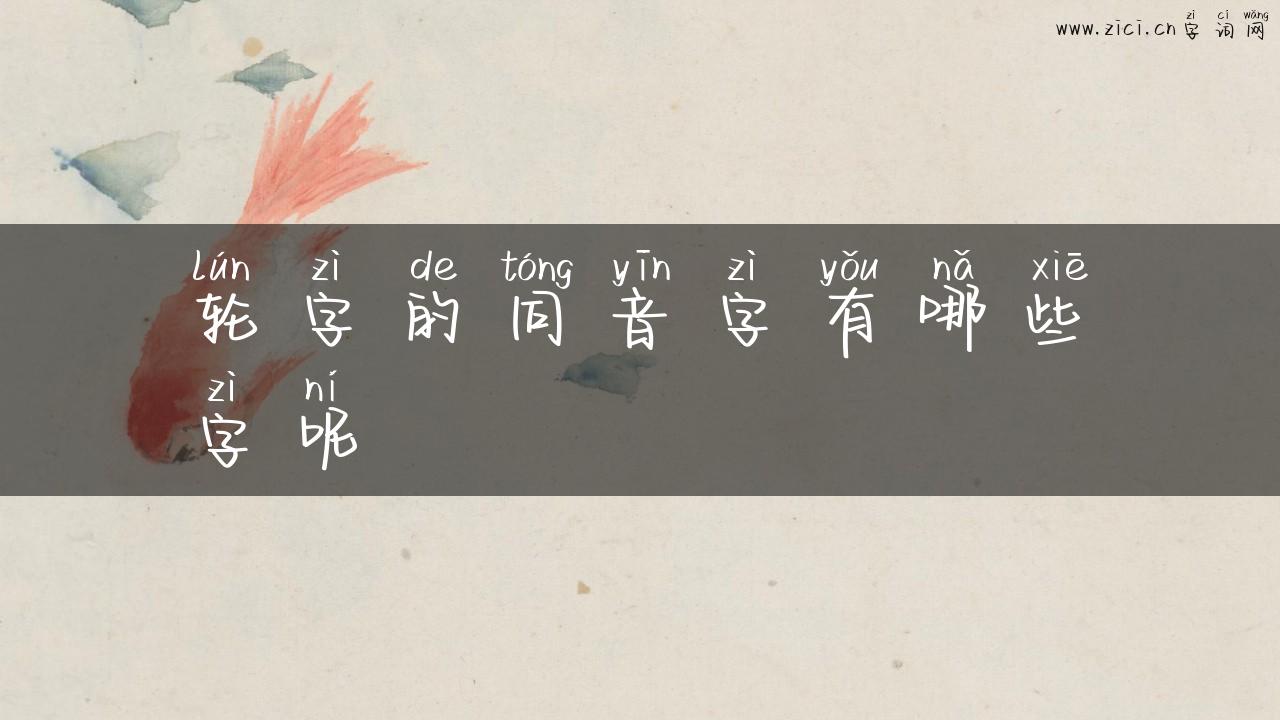 zì cí wǎng
www.zici.cn字词网
lún zì de tóng yīn zì yǒu nǎ xiē
轮字的同音字有哪些
zì ní
字呢